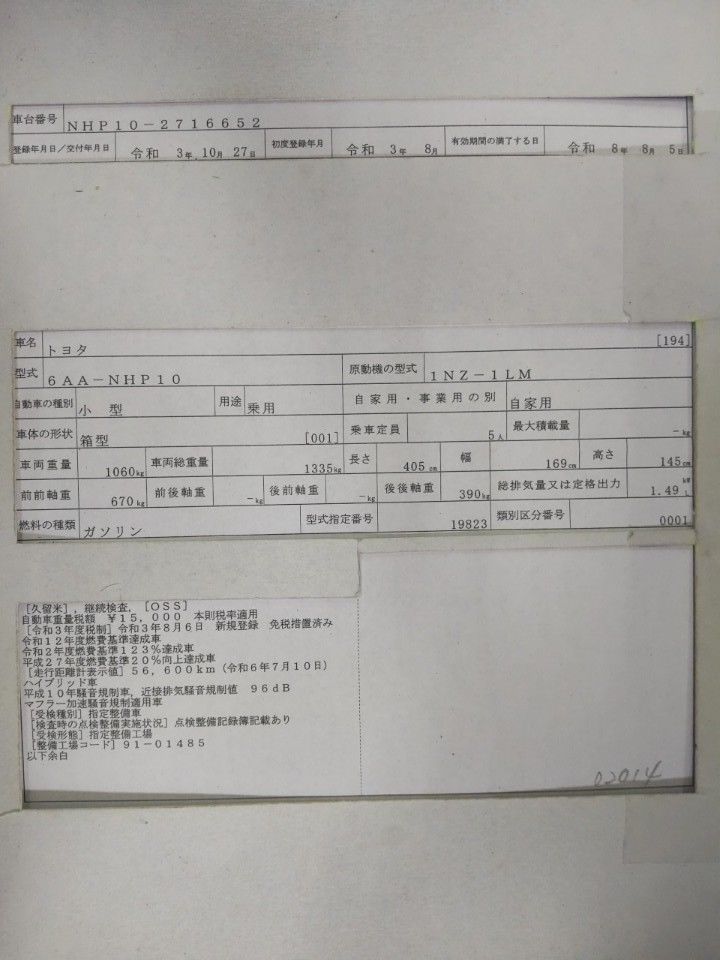 車台番号 NHP10-2716652
登録年月日/交付年月日 令和 3年 10月 27日 初度登録年月 令和 3年 8月 有効期間の満了する日 令和 8年 8月 5日
車名 トヨタ [194]
型式 6AA-NHP10 原動機の型式 1NZ-1LM
自動車の種別 小 型 用途 乗用 自家用・事業用の別 自家用
車体の形状 箱型 [001] 乗車定員 5人 最大積載量 -kg
車両重量 1060kg 車両総重量 1335kg 長さ 405cm 幅 169cm 高さ 145cm
前前軸重 670kg 前後軸重 -kg 後前軸重 -kg 後後軸重 390kg 総排気量又は定格出力 1.49 kW L
燃料の種類 ガソリン 型式指定番号 19823 類別区分番号 0001
[久留米],継続検査,[OSS]
自動車重量税額 ¥15,000 本則税率適用
[令和3年度税制]令和3年8月6日 新規登録 免税措置済み
令和12年度燃費基準達成車
令和2年度燃費基準123%達成車
平成27年度燃費基準20%向上達成車
[走行距離計表示値]56,600km(令和6年7月10日)
ハイブリッド車
平成10年騒音規制車,近接排気騒音規制値 96dB
マフラー加速騒音規制適用車
[受検種別]指定整備車
[検査時の点検整備実施状況]点検整備記録簿記載あり
[受検形態]指定整備工場
[整備工場コード]91-01485
以下余白
02014